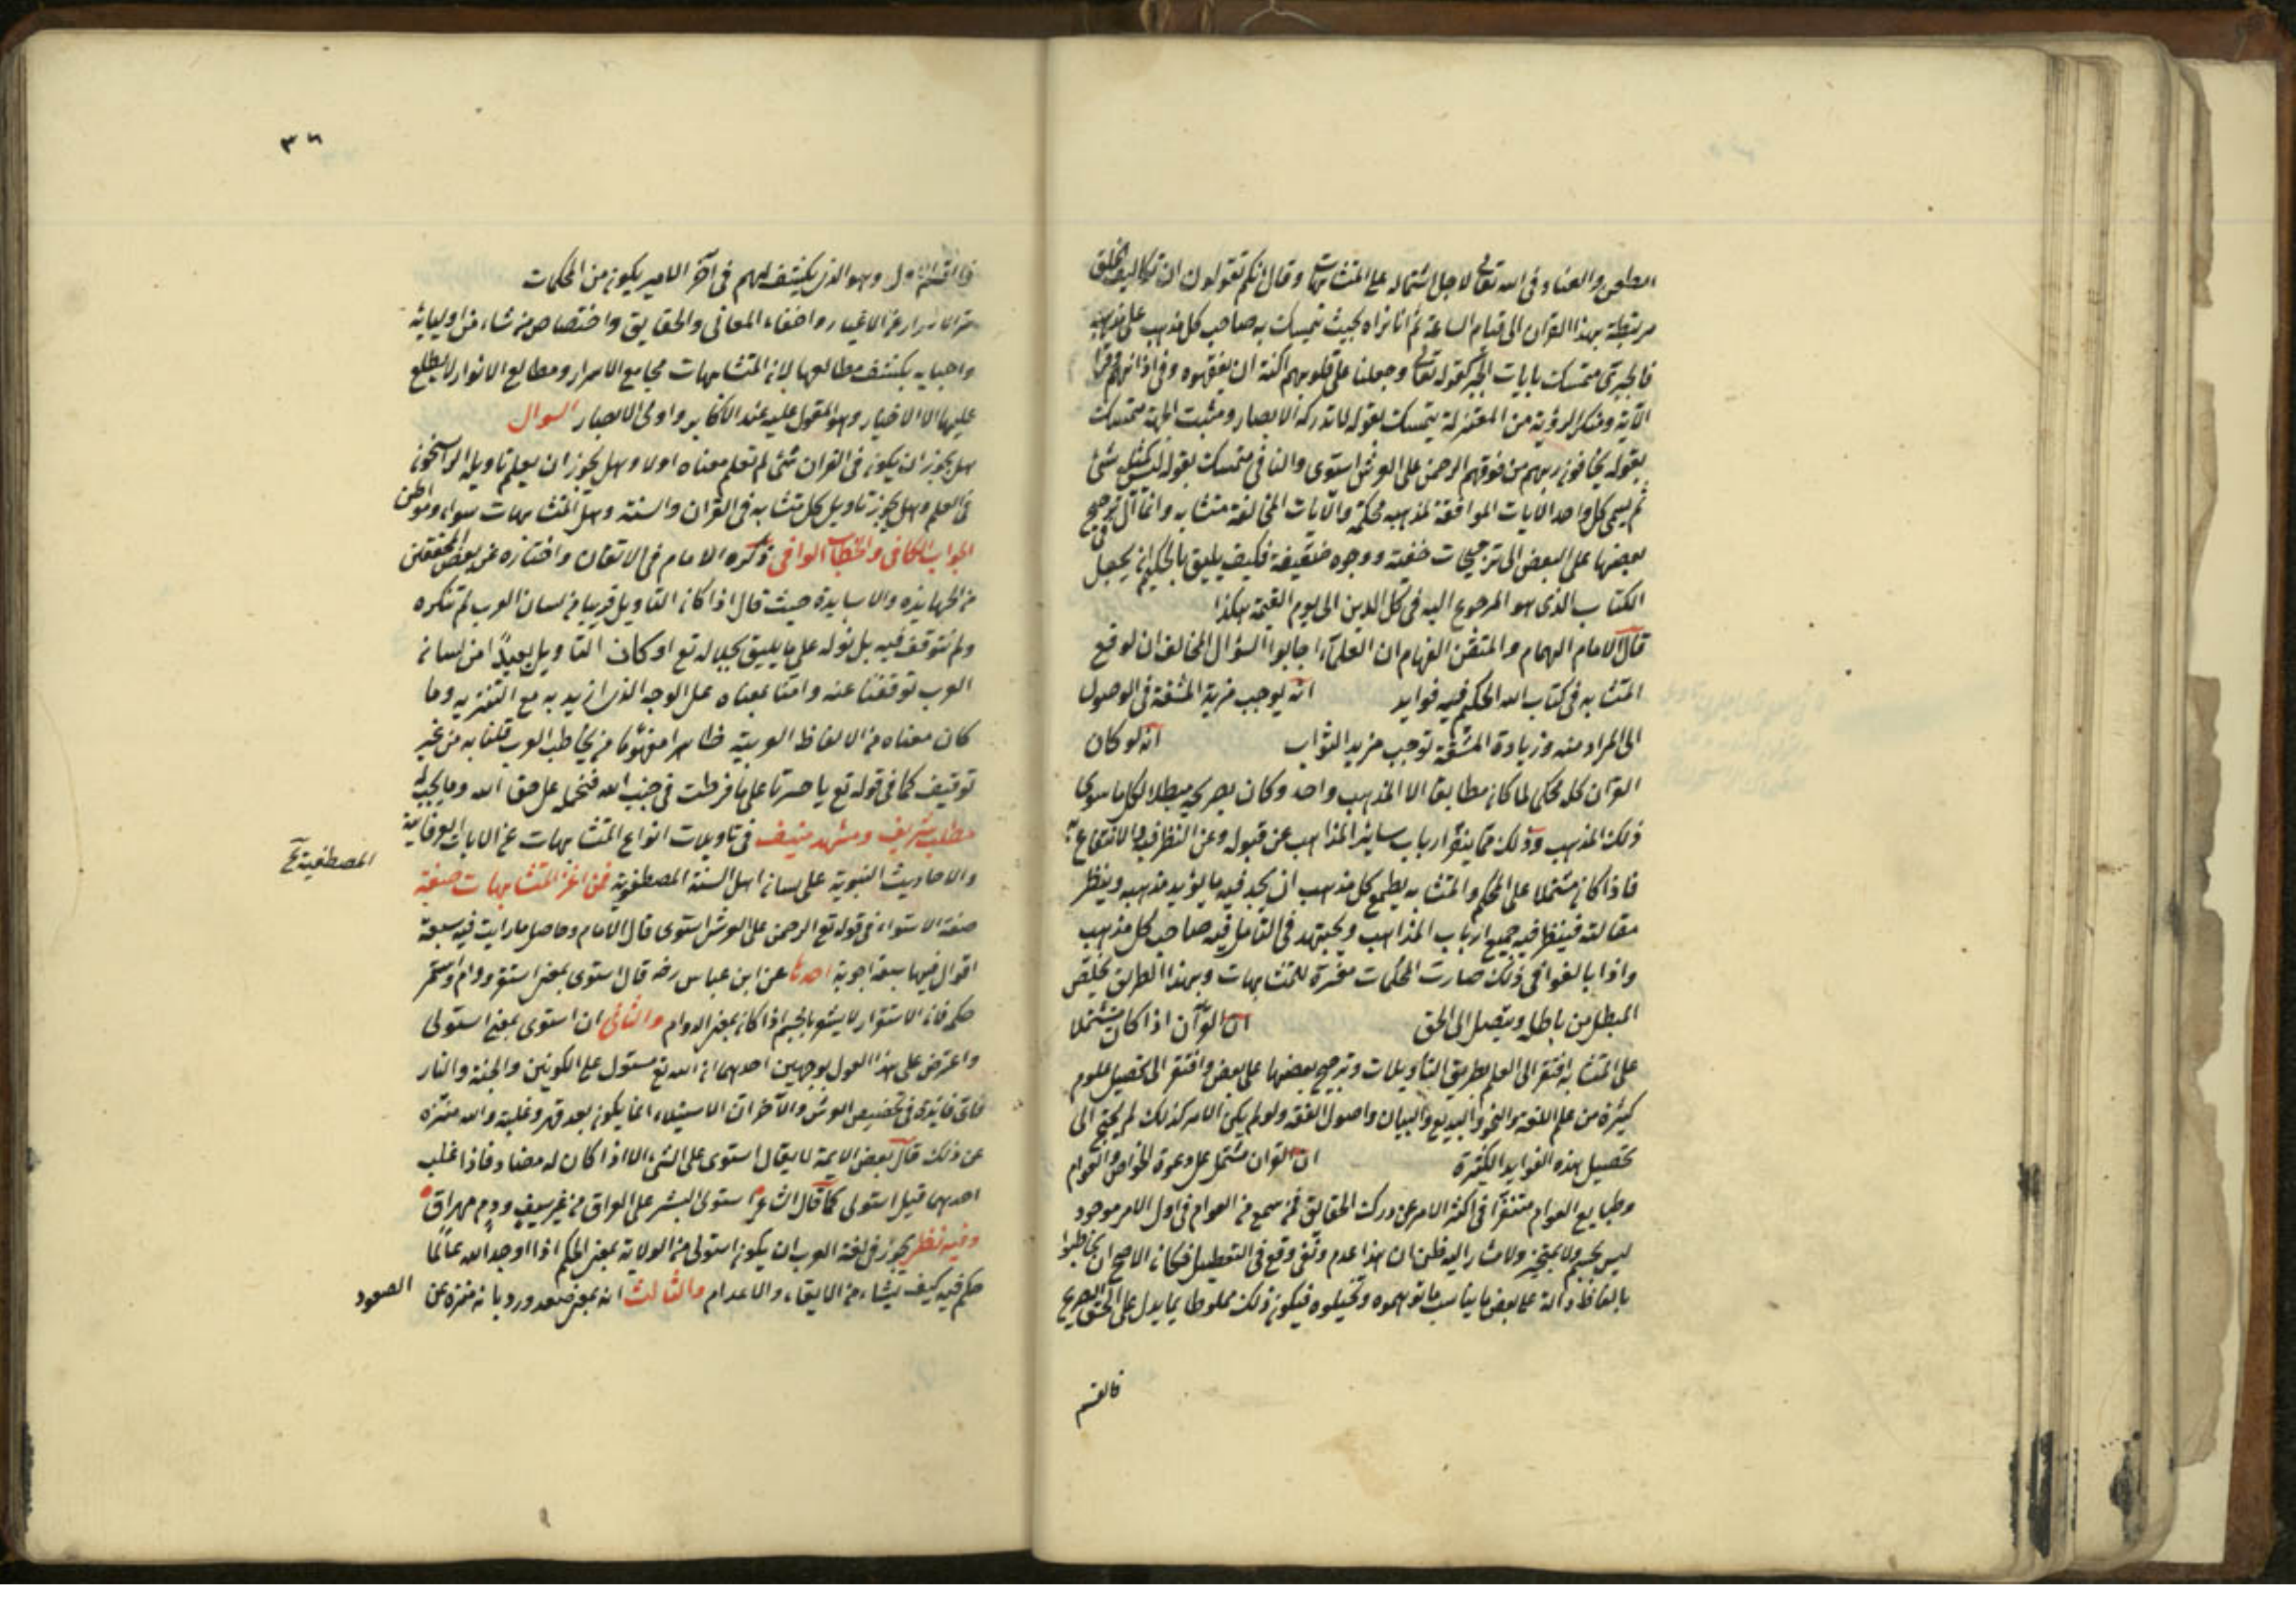 الطعن والعناد فى الله تعالى لاجل اشتماله على المتشابهات وقال انكم تقولون ان تكاليف الخلق
مرتبطة بهذا القرآن الى قيام الساعة ثم انا نراه بحيث يتمسك به صاحب كل مذهب على مذهبه
فالجبرى متمسك بايات الجبر كقوله تعالى وجعلنا على قلوبهم اكنة ان يفقهوه وفى اذانهم وقرا
الآية ومنكر الرؤية من المعتزلة يتمسك بقوله لا تدركه الابصار ومثبت الجهة متمسك
بقوله يخافون ربهم من فوقهم الرحمن على العرش استوى والنافى متمسك بقوله ليس كمثله شئ
ثم يسمى كل واحد الايات الموافقة لمذهبه محكمة والآيات المخالفة متشابه وانما آل فى ترجيح
بعضها على البعض الى ترجيحات خفية ووجوه ضعيفة فكيف يليق بالحكيم ان يجعل
الكتاب الذى هو المرجوع اليه فى كل الدين الى يوم القيمة هكذا
قال الامام الهمام والمتقن الفهام ان العلماء اجابوا السؤال المخالف ان لوقوع
المتشابه فى كتاب الله الحكيم فيه فوايد انه يوجب مزية المشقة فى الوصول
الى المراد منه وزيادة المشقة توجب مزيد الثواب انه لو كان
القرآن كله محكما لما كان مطابقا الا لمذهب واحد وكان بصريحه مبطلا لكل ما سوى
ذلك المذهب وذلك مما ينفر ارباب ساير المذاهب عن قبوله وعن النظر فيه والانتفاع به
فاذا كان مشتملا على المحكم والمتشابه يطمع كل مذهب ان يجد فيه ما يؤيد مذهبه وينظر
مقالته فينظر فيه جميع ارباب المذاهب ويجتهد فى التامل فيه صاحب كل مذهب
واذا بالغوا فى ذلك صارت المحكمات مفسرة للمتشابهات وبهذا الطريق يتخلص
المبطل من باطله ويتصل الى الحق ان القرآن اذا كان مشتملا
على المتشابه افتقر الى العلم بطريق التاويلات وترجيح بعضها على بعض وافتقر الى تحصيل علوم
كثيرة من علم اللغة والنحو والبديع والبيان واصول الفقه ولو لم يكن الامر كذلك لم يحتج الى
تحصيل هذه الفوايد الكثيرة ان القرآن مشتمل على دعوة الخواص والعوام
وطبايع العوام متنفرا فى اكثر الامر عن درك الحقايق فمن سمع من العوام فى اول الامر موجود
ليس بجسم ولا بمتحيز ولا مشار اليه ظن ان هذا عدم ونفى وقع فى التعطيل فكان الاصح ان يخاطبوا
بالفاظ دالة على بعض ما يناسب ما توهموه وتخيلوه فيكون ذلك مخلوطا بما يدل على الحق الصريح
فالقسم
٣٦
فالقسم الاول وهو الذى يكشف لهم فى آخر الامر يكون من المحكمات
ستر الاسرار عن الاغيار واخفاء المعانى والحقايق واختصاص من شاء من اوليايه
واحبايه بكشف مطالعها لان المتشابهات مجامع الاسرار ومطالع الانوار لا يطلع
عليها الا الاخيار وهو المقول عليه عند الاكابر واولى الابصار السوال
هل يجوز ان يكون فى القران شئ لم نعلم معناه اولا وهل يجوز ان يعلم تاويله الراسخون
فى العلم وهل يجوز تاويل كل متشابه فى القرآن والسنة وهل المتشابهات سواء
الجواب الكافى والخطاب الوافى ذكره الامام فى الاتقان واختاره عن بعض المحققين
من الجهابذه والاسايدة حيث قال اذا كان التاويل قريبا من لسان العرب لم ننكره
ولم نتوقف فيه بل نوله على ما يليق بجلاله تع او كان التاويل بعيدًا من لسان
العرب توقفنا عنه وامنا بمعناه على الوجه الذى اريد به مع التنزيه وما
كان معناه من الالفاظ العربية ظاهرا مفهوما من تخاطب العرب قلنا به من غير
توقيف كما فى قوله تع يا حسرتا على ما فرطت فى جنب الله فنحمله على حق الله وما يجب له
مطلب شريف ومشهد منيف فى تاويلات انواع المتشابهات عن الايات الفرقانية
والاحاديث النبوية على لسان اهل السنة المصطفوية فمن اعز المتشابهات صفة
المصطفية
صفة الاستواء فى قوله تع الرحمن على العرش استوى قال الامام وحاصل ما رايت فيه سبعة
اقوال فيها سبعة اجوبة احدها عن ابن عباس رضه قال استوى بمعنى استقر ودام واستمر
حكمه فان الاستقرار لا يشعر بالجسم اذا كان بمعنى الدوام والثانى ان استوى بمعنى استولى
واعترض على هذا القول بوجهين احدهما ان الله تع مستول على الكونين والجنة والنار
فاى فايدة فى تخصيص العرش والآخر ان الاستيلاء انما يكون بعد قهر وغلبة والله منزه
عن ذلك قال بعض الايمة لا يقال استوى على الشئ الا اذا كان له مضاد فاذا غلب
احدهما قيل استولى كما قال الشاعر استوى البشر على العراق من غير سيف ودم مهراق
وفيه نظر يجوز فى لغة العرب ان يكون استولى من الولاية بمعنى الحكم اذا اوجد الله عالما
حكم فيه كيف يشاء من الابقاء والاعدام والثالث انه بمعنى صعد ورد بانه منزه عن الصعود